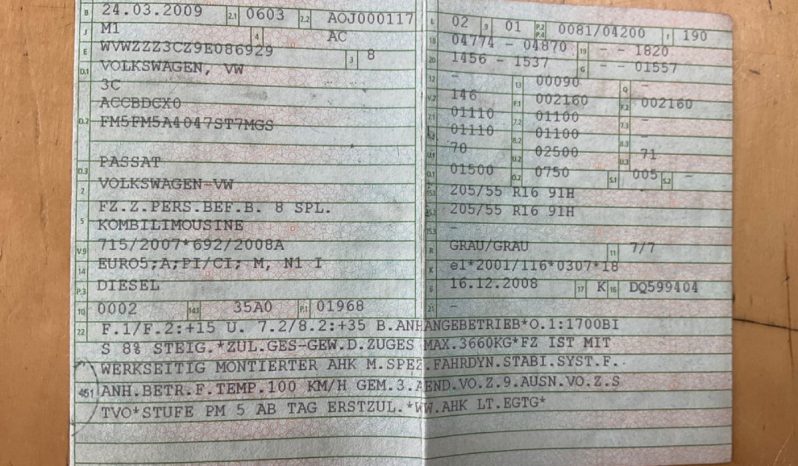 B 24.03.2009 2.1 0603 2.2 AOJ000117
J M1 4 AC
E WVWZZZ3CZ9E086929 3 8
D.1 VOLKSWAGEN, VW
3C
ACCBDCX0
D.2 FM5FM5A4047ST7MGS
PASSAT
D.3
VOLKSWAGEN-VW
2
FZ.Z.PERS.BEF.B. 8 SPL.
5 KOMBILIMOUSINE
V.9 715/2007*692/2008A
14 EURO5;A;PI/CI; M, N1 I
P.3 DIESEL
10 0002 14.1 35A0 P.1 01968
L 02 9 01 P.2 P.4 0081/04200 T 190
18 04774 - 04870 19 - - 1820
20 1456 - 1537 G - - 01557
12 - 13 00090 Q -
V.7 146 F.1 002160 F.2 002160
7.1 01110 7.2 01100 7.3 -
8.1 01110 8.2 01100 8.3 -
U.1 70 U.2 02500 U.3 71
O.1 01500 O.2 0750 S.1 005 S.2 -
15.1 205/55 R16 91H
15.2 205/55 R16 91H
15.3 -
R GRAU/GRAU 11 7/7
K e1*2001/116*0307*18
6 16.12.2008 17 K 16 DQ599404
21 -
22 F.1/F.2:+15 U. 7.2/8.2:+35 B.ANHANGEBETRIEB*O.1:1700BI
S 8% STEIG.*ZUL.GES-GEW.D.ZUGES MAX.3660KG*FZ IST MIT
WERKSEITIG MONTIERTER AHK M.SPEZ.FAHRDYN.STABI.SYST.F.
451 ANH.BETR.F.TEMP.100 KM/H GEM.3.AEND.VO.Z.9.AUSN.VO.Z.S
TVO*STUFE PM 5 AB TAG ERSTZUL.*WW.AHK LT.EGTG*